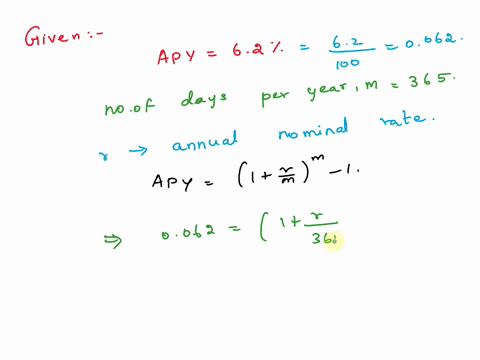 Given:-
APY = 6.2% = 6.2/100 = 0.062.
no.of days per year, m = 365.
r → annual nominal rate.
APY = (1 + r/m)^m - 1.
⇒ 0.062 = (1 + r/36